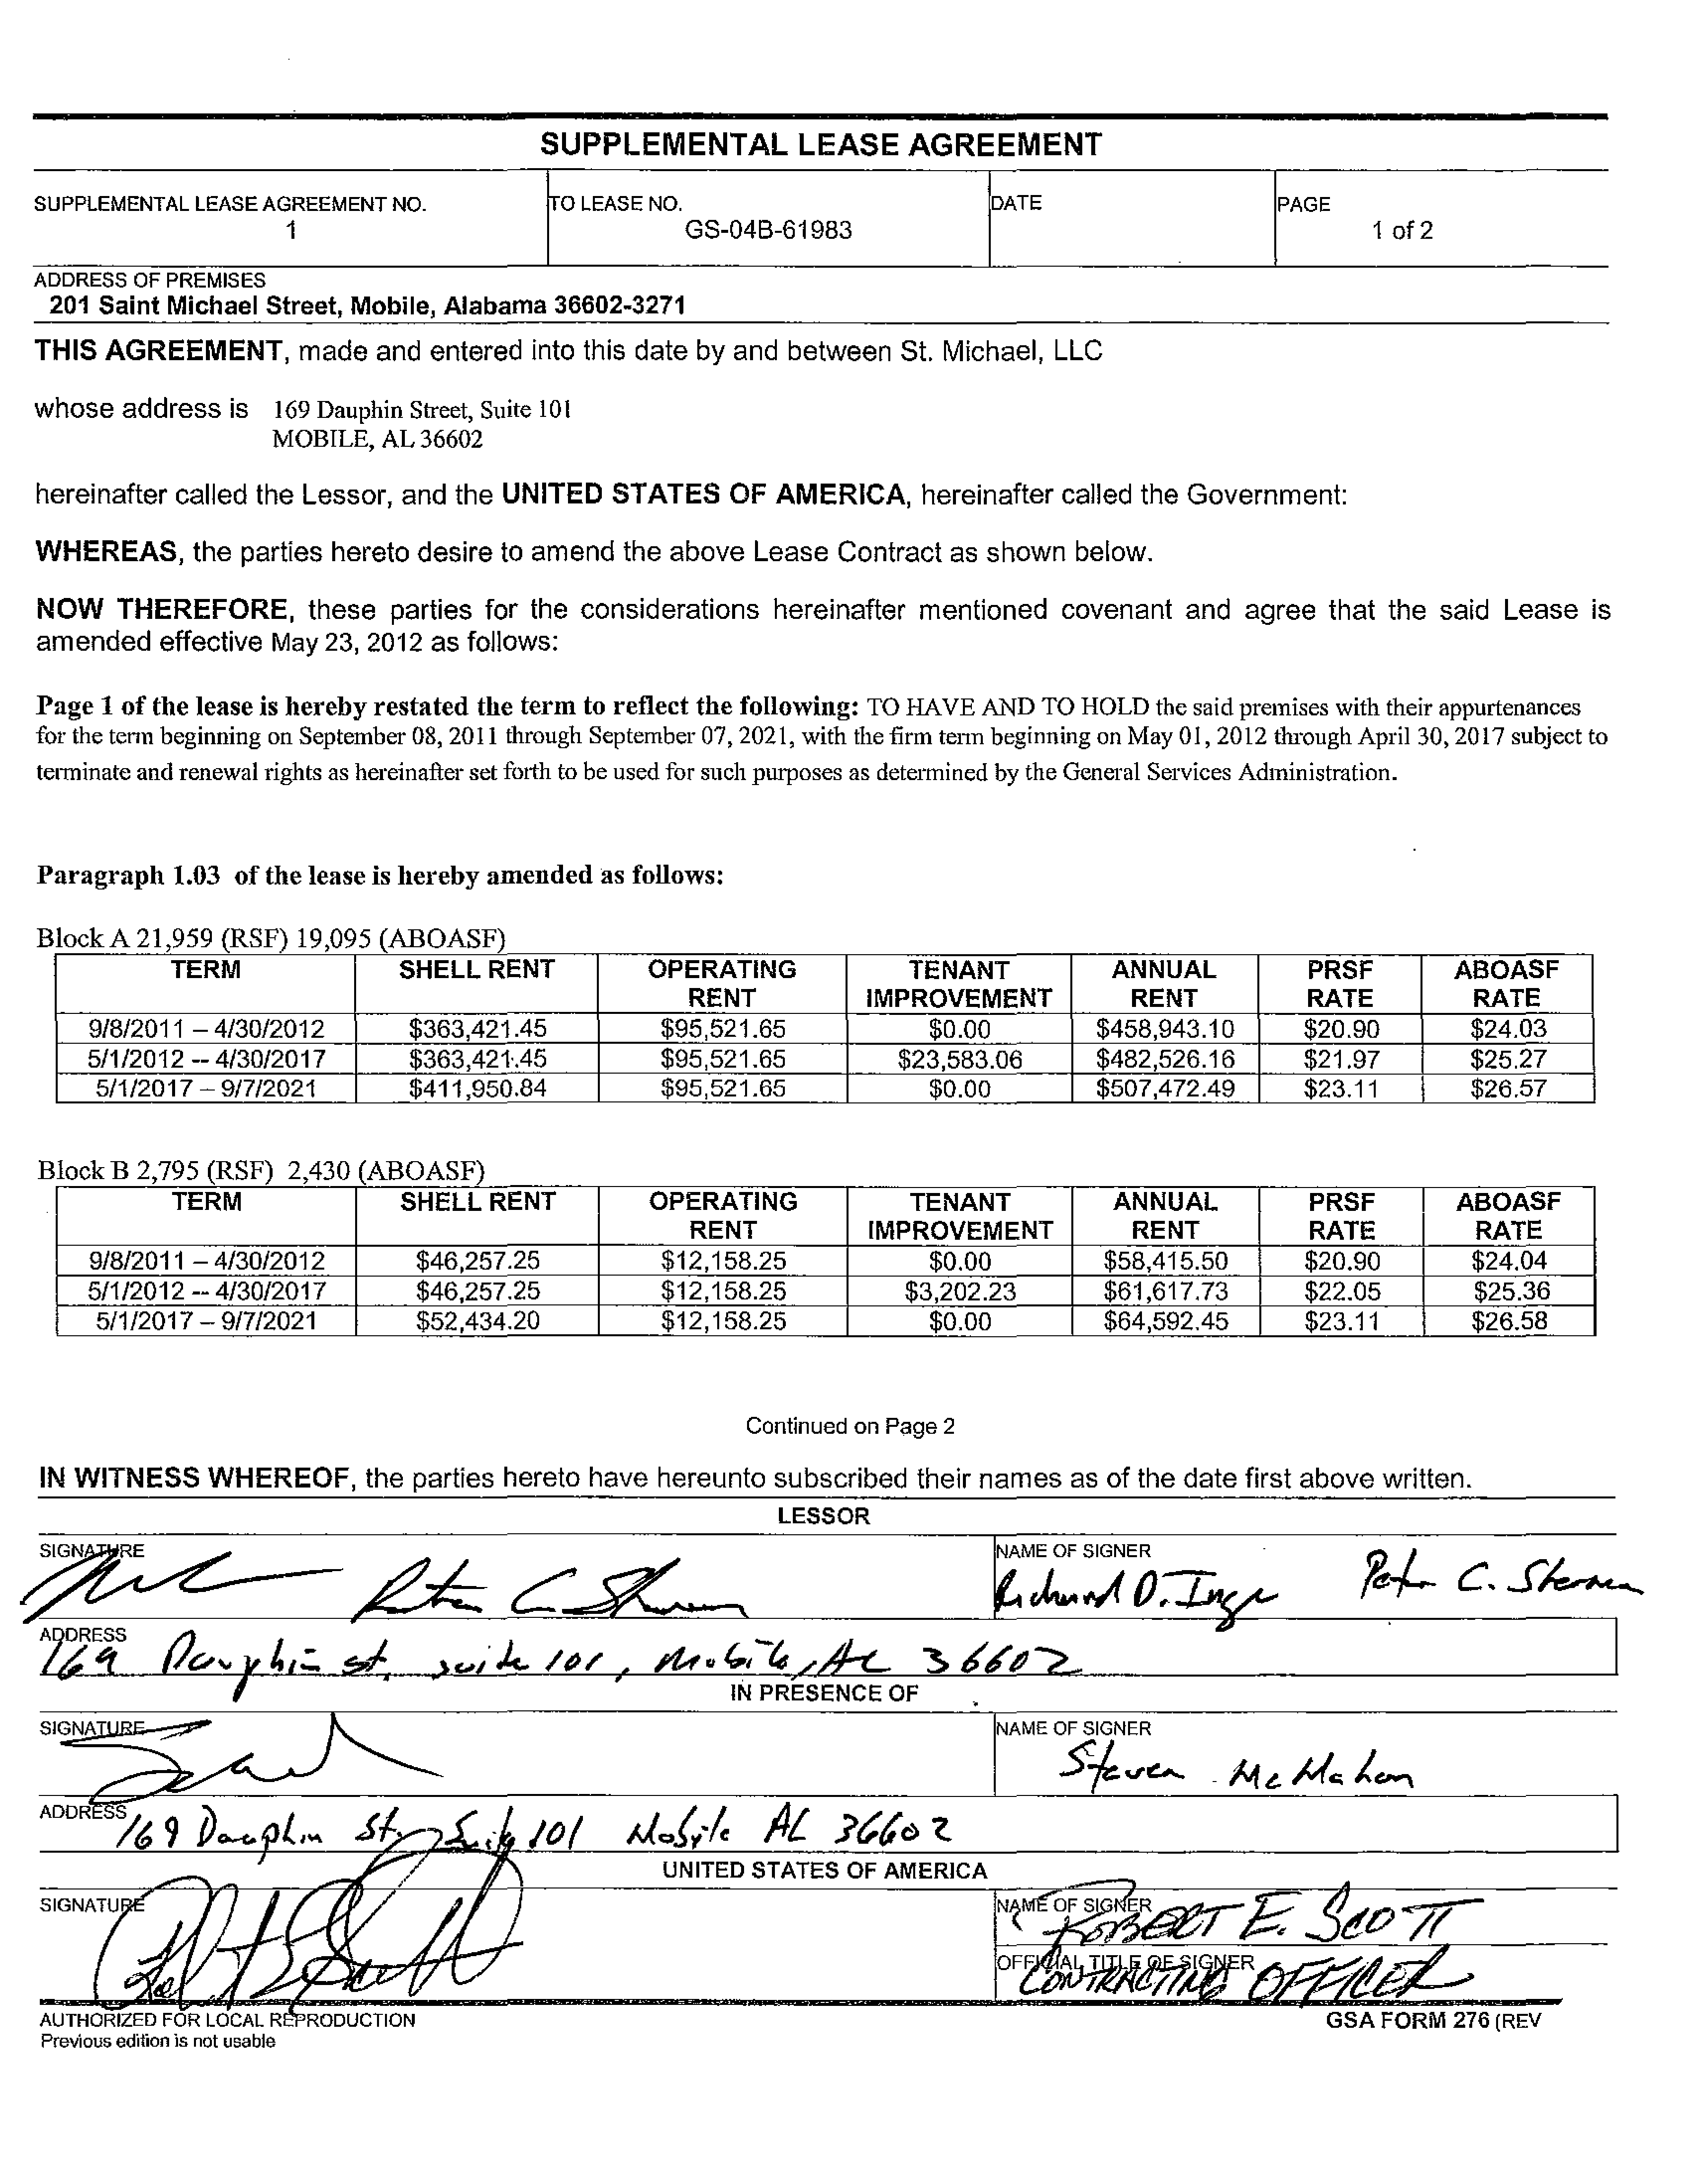 SUPPLEMENTAL LEASE AGREEMENT
SUPPLEMENTAL LEASE AGREEMENT NO.
1
TO LEASE NO.
GS-04B-61983
DATE
PAGE
1 of 2
ADDRESS OF PREMISES
201 Saint Michael Street, Mobile, Alabama 36602-3271
THIS AGREEMENT, made and entered into this date by and between St. Michael, LLC
whose address is 169 Dauphin Street, Suite 101
MOBILE, AL 36602
hereinafter called the Lessor, and the UNITED STATES OF AMERICA, hereinafter called the Government:
WHEREAS, the parties hereto desire to amend the above Lease Contract as shown below.
NOW THEREFORE, these parties for the considerations hereinafter mentioned covenant and agree that the said Lease is
amended effective May 23, 2012 as follows:
Page 1 of the lease is hereby restated the term to reflect the following: TO HAVE AND TO HOLD the said premises with their appurtenances
for the term beginning on September 08, 2011 through September 07, 2021, with the firm term beginning on May 01, 2012 through April 30, 2017 subject to
terminate and renewal rights as hereinafter set forth to be used for such purposes as determined by the General Services Administration.
Paragraph 1.03 of the lease is hereby amended as follows:
Block A 21,959 (RSF) 19,095 (ABOASF)
TERM SHELL RENT OPERATING TENANT ANNUAL PRSF ABOASF
RENT IMPROVEMENT RENT RATE RATE
9/8/2011 – 4/30/2012 $363,421.45 $95,521.65 $0.00 $458,943.10 $20.90 $24.03
5/1/2012 -- 4/30/2017 $363,421.45 $95,521.65 $23,583.06 $482,526.16 $21.97 $25.27
5/1/2017 – 9/7/2021 $411,950.84 $95,521.65 $0.00 $507,472.49 $23.11 $26.57
Block B 2,795 (RSF) 2,430 (ABOASF)
TERM SHELL RENT OPERATING TENANT ANNUAL PRSF ABOASF
RENT IMPROVEMENT RENT RATE RATE
9/8/2011 – 4/30/2012 $46,257.25 $12,158.25 $0.00 $58,415.50 $20.90 $24.04
5/1/2012 -- 4/30/2017 $46,257.25 $12,158.25 $3,202.23 $61,617.73 $22.05 $25.36
5/1/2017 – 9/7/2021 $52,434.20 $12,158.25 $0.00 $64,592.45 $23.11 $26.58
Continued on Page 2
IN WITNESS WHEREOF, the parties hereto have hereunto subscribed their names as of the date first above written.
LESSOR
SIGNATURE
NAME OF SIGNER
Richard D. Inge Peter C. Sherman
ADDRESS
169 Dauphin st. suite 101, Mobile, AL 36602
IN PRESENCE OF
SIGNATURE
NAME OF SIGNER
Steven McMahon
ADDRESS
169 Dauphin St, Suite 101 Mobile AL 36602
UNITED STATES OF AMERICA
SIGNATURE
NAME OF SIGNER
ROBERT E. SCOTT
OFFICIAL TITLE OF SIGNER
CONTRACTING OFFICER
AUTHORIZED FOR LOCAL REPRODUCTION
Previous edition is not usable
GSA FORM 276 (REV